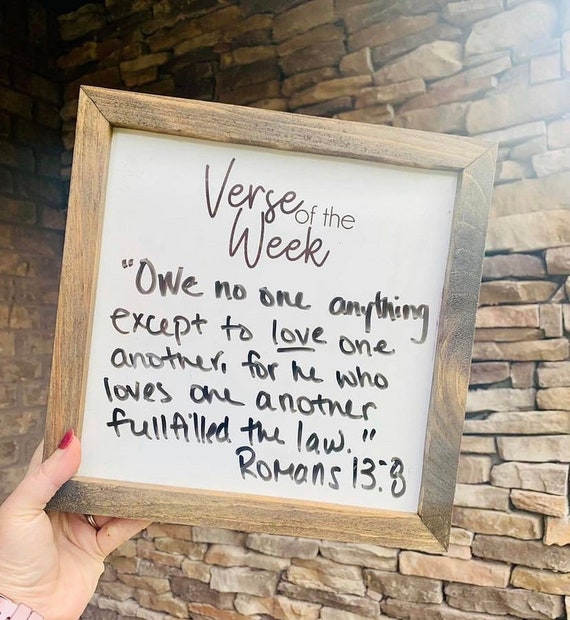 Verse of the
Week
"Owe no one anything
except to love one
another, for he who
loves one another
fullfilled the law."
Romans 13:8